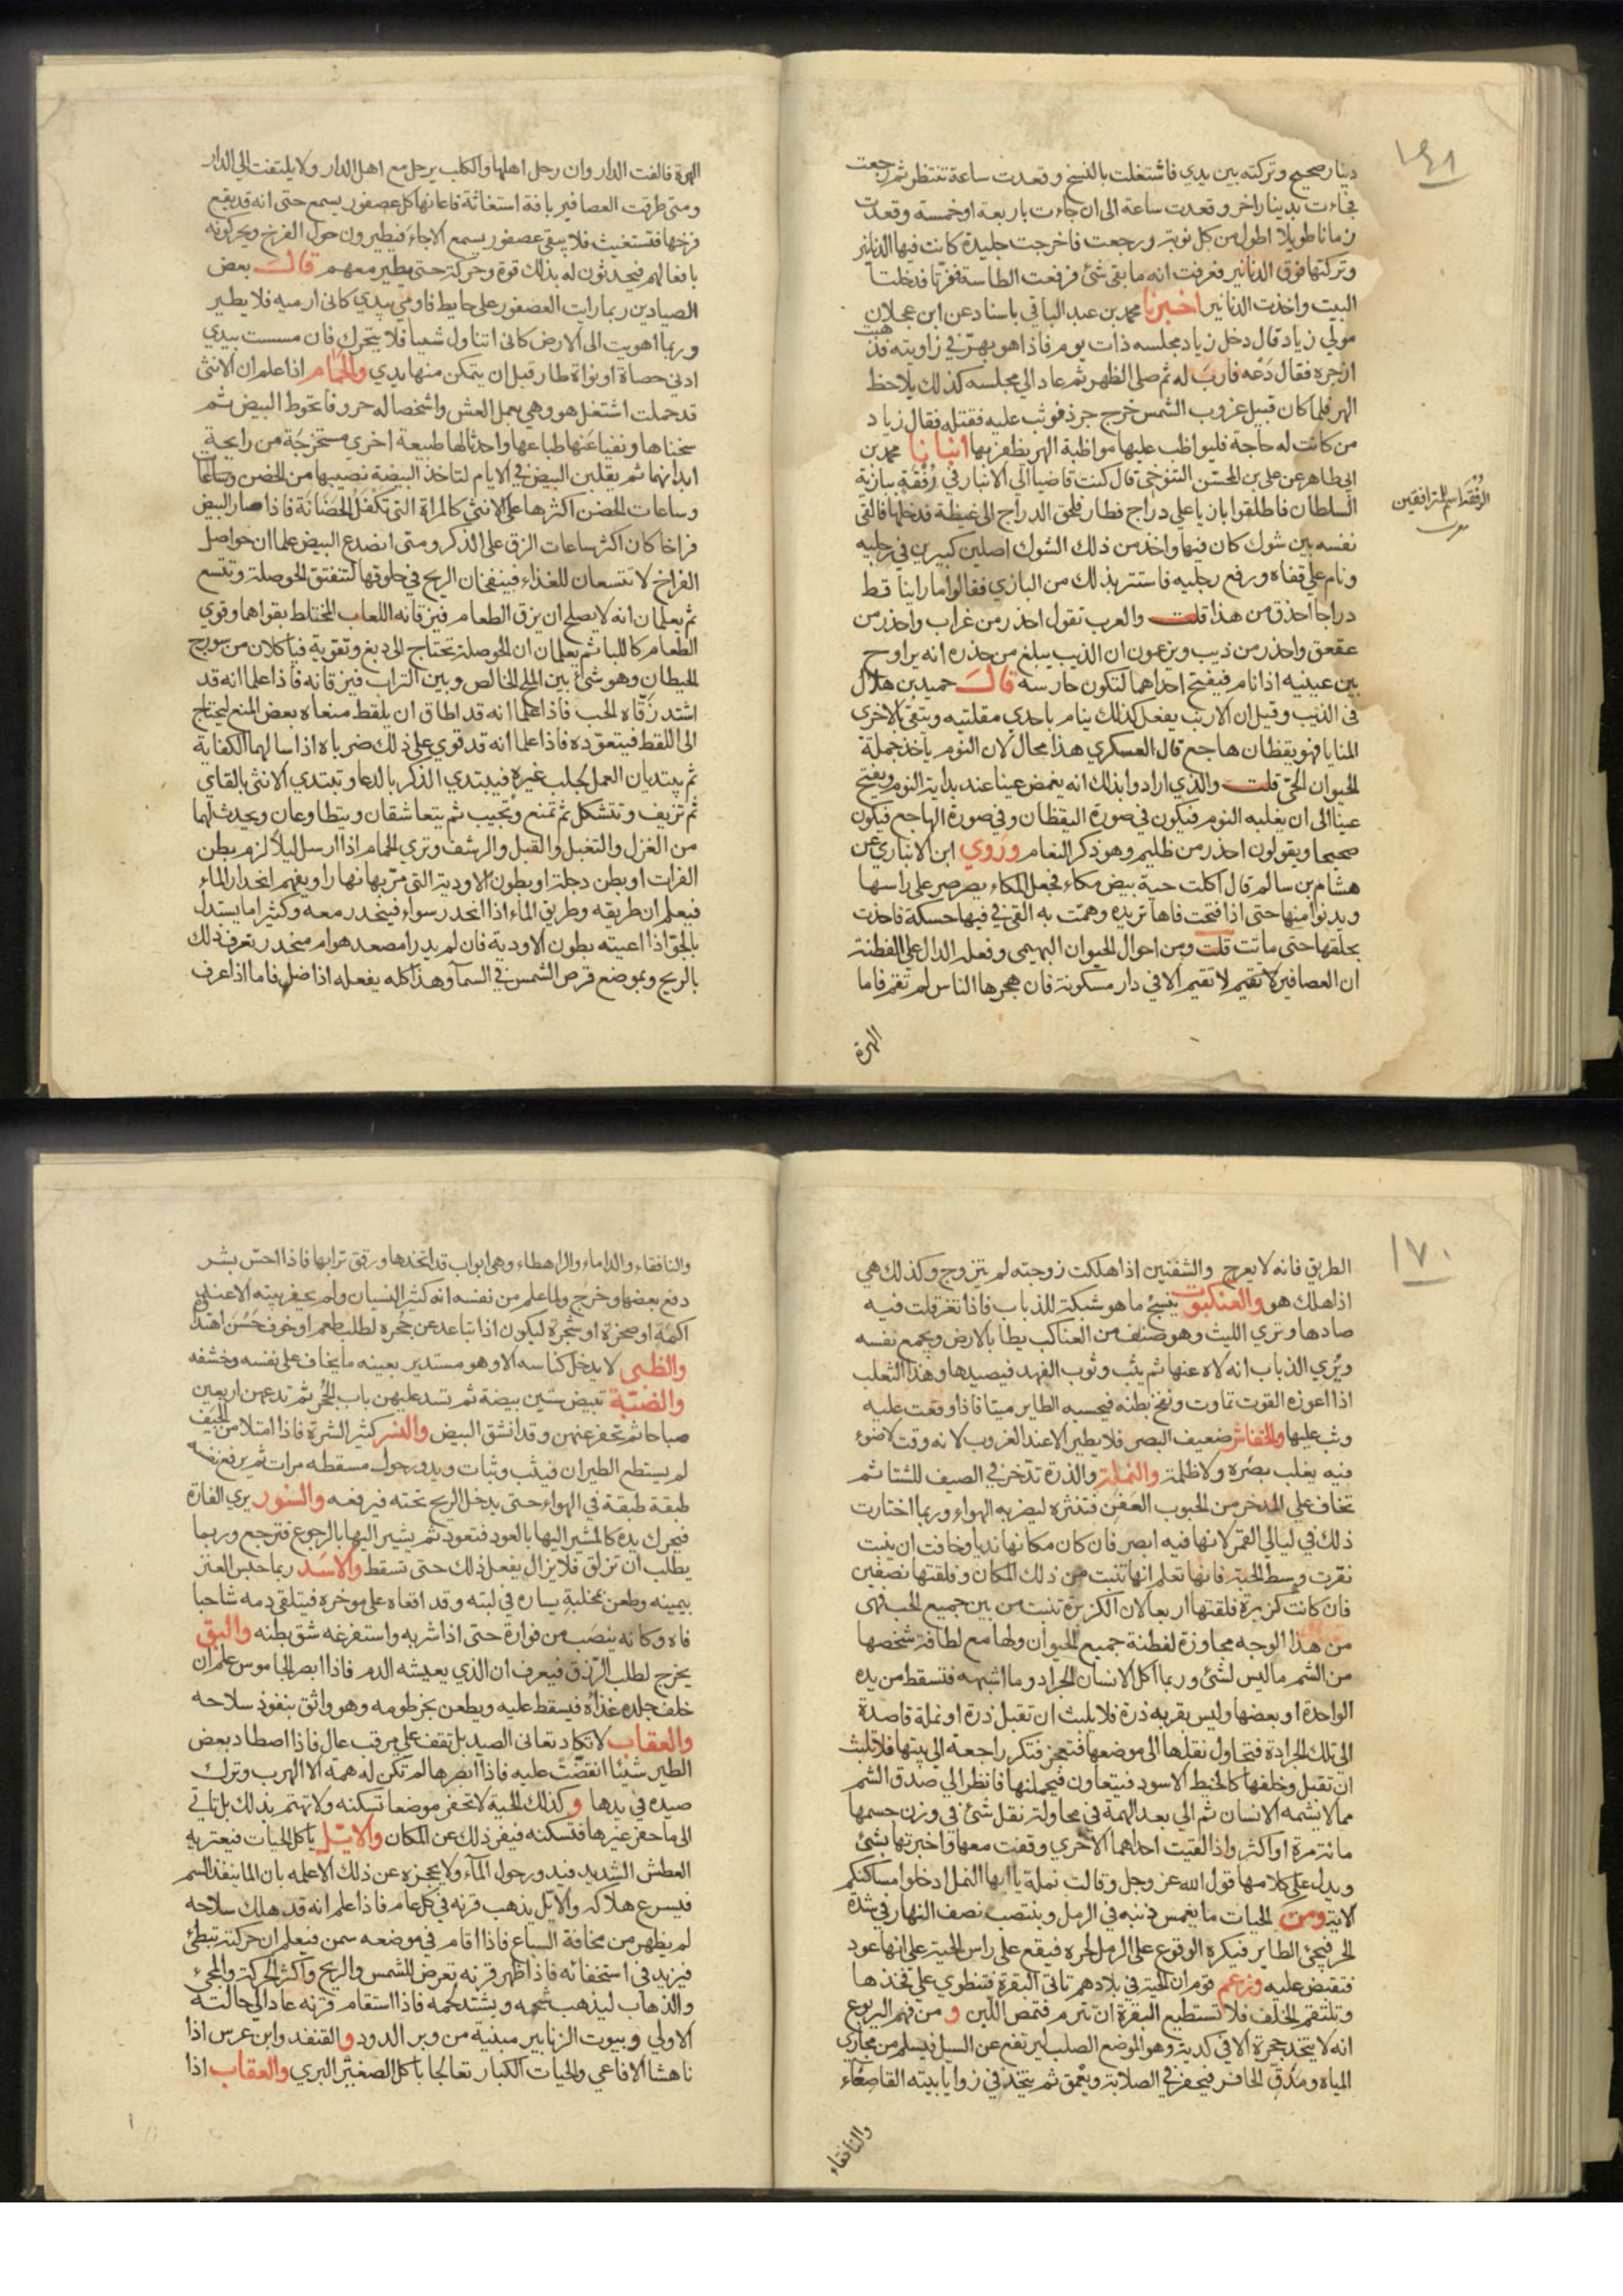 ١٦٩
دينار صحيح وتركته بين يدي فاشتغلت بالنسخ وقعدت ساعة تنتظر ثم رجعت
فجاءت بدينار اخر وقعدت ساعة الى ان جاءت باربعة او خمسة وقعدت
زمانا طويلا اطول من كل نوبة ورجعت فاخرجت جليدة كانت فيها الدنانير
وتركتها فوق الدنانير فعرفت انه ما بقي شئ فرفعت الطاسة ففرتا فدخلتا
البيت واخذت الدنانير اخبرنا محمد بن عبد الباقي باسناد عن ابن عجلان
مولي زياد قال دخل زياد مجلسه ذات يوم فاذا هو بهرّ في زاويته فذهبت
ازجره فقال دَعْه فارب له ثم صلى الظهر ثم عاد الي مجلسه كذلك يلاحظ
الهر فلما كان قبيل غروب الشمس خرج جرذ فوثب عليه فقتله فقال زياد
من كانت له حاجة فليواظب عليها مواظبة الهر يظفر بها انبانا محمد بن
ابي طاهر عن علي بن المحسّن التنوخي قال كنت قاضيا الي الانبار في رُفْقَةٍ بيازرة
الرُفقَة اسم للمترافقين
السلطان فاطلقوا بازيا علي دراج فطار فلحق الدراج الى غيظة فدخلها فالقى
نفسه بين شوك كان فيها واخذ من ذلك الشوك اصلين كبيرين في رجليه
ونام علي قفاه ورفع رجليه فاستتر بذلك من البازي فقالوا ما راينا قط
دراجا احذق من هذا قلت والعرب تقول احذر من غراب واحذر من
عقعق واحذر من ذيب ويزعمون ان الذيب يبلغ من حذره انه يراوح
بين عينيه اذا نام فيفتح احداهما لتكون حارسه قال حميد بن هلال
في الذيب وقيل ان الارنب يفعل كذلك ينام باحدي مقلتيه ويتقي الاخري
المنايا فهو يقظان هاجع قال العسكري هذا محال لان النوم ياخذ جملة
الحيوان الحيّ قلت والذي ارادوا بذلك انه يغمض عينا عند بداية النوم ويفتح
عينا الى ان يغلبه النوم فيكون في صورة اليقظان وفي صورة الهاجع فيكون
صحيحا ويقولون احذر من ظليم وهو ذكر النعام وروي ابن الانباري عن
هشام بن سالم قال اكلت حية بيض مكاء فجعل المكاء يصرصر على راسها
ويدنوا منها حتى اذا فتحت فاها تريده وهمّت به القي في فيها حسكة فاخذت
بحلقها حتى ماتت قلت ومن احوال الحيوان البهيمي وفعله الدال علي الفطنة
ان العصافير لا تقيم لا تقيم الا في دار مسكونة فان هجرها الناس لم تقم فاما
الهرة
الهرة فالفت الدار وان رحل اهلها والكلب يرحل مع اهل الدار ولا يلتفت الي الدار
ومتى طرقت العصافير بافة استغاثة فاعانها كل عصفور يسمع حتى انه قد يقع
فرخها فتستغيث فلا يبقى عصفور يسمع الا جاء فيطيرون حول الفرخ ويحركونه
بافعالهم فيحدثون له بذلك قوة وحركة حتى يطير معهم قال بعض
الصيادين ربما رايت العصفور على حايط فاومي بيدي كاني ارميه فلا يطير
وربما اهويت الى الارض كاني اتناول شيا فلا يتحرك فان مسست بيدي
ادنى حصاة او نواة طار قبل ان يتمكن منها يدي والحمام اذا علم ان الانثى
قد حملت اشتغل هو وهي بعمل العش واشخصا له حروفا تحوط البيض ثم
سخناها ونفيا عنها طباعها واحدثا لها طبيعة اخري مستخرجة من رايحة
ابدانهما ثم يقلبن البيض في الايام لتاخذ البيضة نصيبها من الحضن وساعا
وساعات الحضن اكثرها على الانثى كالمراة التي تكفل الحضانة فاذا صار البيض
فراخا كان اكثر ساعات الزق على الذكر ومتى انصدع البيض علما ان حواصل
الفراخ لا تتسعان للغذاء فينفخان الريح في حلوقها لتنفتق الحوصلة وتتسع
ثم يعلمان انه لا يصلح ان يزق الطعام فيزقانه اللعاب المختلط بقواهما وقوي
الطعام كاللبا ثم يعلمان ان الحوصلة تحتاج الى دبغ وتقوية فياكلان من سورج
الحيطان وهو شئ بين الملح الخالص وبين التراب فيزقانه فاذا علما انه قد
اشتد زقّاه الحب فاذا علما انه قد اطاق ان يلقط منعاه بعض المنع ليحتاج
الى اللقط فيتعوّده فاذا علما انه قد قوي علي ذلك ضرباه اذا سالهما الكفاية
ثم يبتديان العمل لجلب غيره فيبتدي الذكر بالدعا وتبتدي الانثى بالتاتي
ثم تزيف وتتشكل ثم تمنع وتجيب ثم يتعاشقان ويتطاوعان ويحدث لهما
من الغزل والتغبل والقبل والرشف وتري الحمام اذا ارسل ليلا لزم بطن
الفرات او بطن دجلة او بطون الاودية التي مرّ بها نهارا ويفهم انحدار الماء
فيعلم ان طريقه وطريق الماء اذا انحدر سواء فينحدر معه وكثيرا ما يستدل
بالجوّ اذا اعيته بطون الاودية فان لم يدر امصعد هو ام منحدر تعرف ذلك
بالريح وبموضع قرص الشمس في السمآ وهذا كله يفعله اذا ضل فاما اذا عرف
١٧٠
الطريق فانه لا يعرج والشفنين اذا هلكت زوجته لم يتزوج وكذلك هي
اذا هلك هو والعنكبوت ينسج ما هو شبكة للذباب فاذا تعرقلت فيه
صادها وتري الليث وهو صنف من العناكب يطا بالارض ويجمع نفسه
ويُري الذباب انه لاه عنها ثم يثب وثوب الفهد فيصيدها وهذا الثعلب
اذا اعوزه القوت تماوت ونفخ بطنه فيحسبه الطاير ميتا فاذا وقعت عليه
وثب عليها والخفاش ضعيف البصر فلا يطير الا عند الغروب لانه وقت لا ضوء
فيه يغلب بصره ولا ظلمة والنملة والذرة تدّخر في الصيف للشتا ثم
تخاف علي المدخر من الحبوب العَفَن فتنثره ليضربه الهواء وربما اختارت
ذلك في ليالي القمر لانها فيه ابصر فان كان مكانها نديا وخافت ان ينبت
نقرت وسط الحبة فانها تعلم انها تنبت من ذلك المكان وفلقتها نصفين
فان كانت كزبرة فلقتها اربعا لان الكزبرة تنبت من بين جميع الحب فهى
من هذا الوجه مجاوزة لفطنة جميع الحيوان ولها مع لطافة شخصها
من الشم ما ليس لشئ وربما اكل الانسان الجراد وما اشبهه فتسقط من يده
الواحدة او بعضها وليس بقربه ذرة فلا يلبث ان تقبل ذرة او نملة قاصدة
الي تلك الجرادة فتحاول نقلها الى موضعها فتعجز فتكر راجعة الى بيتها فلا تلبث
ان تقبل وخلفها كالخيط الاسود فيتعاون فيحملنها فانظر الي صدق الشم
مما لا يشمه الانسان ثم الي بعد الهمة في محاولة نقل شئ في وزن جسمها
مائة مرة او اكثر واذا لقيت احداهما الاخري وقفت معها واخبرتها بشئ
ويدل علي كلامها قول الله عز وجل وقالت نملة يا ايها النمل ادخلوا مساكنكم
الاية ومن الحيات ما يغمس ذنبه في الرمل وينتصب نصف النهار في شدة
الحر فيجئ الطاير فيكره الوقوع على الرمل لحره فيقع على راس الحية على انها عود
فتقبض عليه وزعم قوم ان الحية في بلادهم تاتي البقرة فتنطوي علي فخذها
وتلتقم الخلف فلا تستطيع البقرة ان تترم فتمص اللبن و من فهم اليربوع
انه لا يتخذ جحره الا في كدية وهو الموضع الصلب ليرتفع عن السيل فيسلم من مجاري
المياه ومدقّ الحافر فيحفر في الصلابة ويعمق ثم يتخذ في زوايا بيته القاصعاء
والنافقاء
والنافقاء والداماء والراهطاء وهي ابواب قد اتخذها ورقق ترابها فاذا احسّ بشر
دفع بعضها وخرج ولما علم من نفسه انه كثير النسيان ولم يحفر بيته الا عند
اكمة او صخرة او شجرة ليكون اذا تباعد عن جُحره لطلب طعم او خوف حَسُنَ اهتدا
والظبى لا يدخل كناسه الا وهو مستدبر بعينه ما يخاف على نفسه وخشفه
والضبّة تبيض ستين بيضة ثم تسد عليهن باب الجُحر ثم تدعهن اربعين
صباحا ثم تحفر عنهن وقد انشق البيض والنسر كثير الشره فاذا امتلا من الجيف
لم يستطع الطيران فيثب وثبات ويدور حول مسقطه مرات ثم يرفع نفسه
طبقة طبقة في الهواء حتى يدخل الريح تحته فيرفعه والسنور يري الفارة
فيحرك يده كالمشير اليها بالعود فتعود ثم يشير اليها بالرجوع فترجع وربما
يطلب ان تزلق فلا يزال يفعل ذلك حتى تسقط والاسد ربما حبس العنز
بيمينه وطعن بمخلبه يساره في لبته وقد اقعاه على موخره فيتلقى دمه شاحبا
فاه وكانه ينصب من فوارة حتى اذا شربه واستفرغه شق بطنه والبق
يخرج لطلب الرزق فيعرف ان الذي يعيشه الدم فاذا ابصر الجاموس علم ان
خلف جلده غذاه فيسقط عليه ويطعن بخرطومه وهو واثق بنفوذ سلاحه
والعقاب لا تكاد تعانى الصيد بل تقف على مرقب عال فاذا اصطاد بعض
الطير شيئا انقضّت عليه فاذا ابصرها لم تكن له همة الا الهرب وترك
صيده في يدها و كذلك الحية لا تحفر موضعا تسكنه ولا تهتم بذلك بل تاتي
الى ما حفر غيرها فتسكنه فيفر ذلك عن المكان والايّل ياكل الحيات فيعتريه
العطش الشديد فيدور حول المآء ولا يحجزه عن ذلك الا علمه بان الما ينفذ السم
فيسرع هلاكه والايّل يذهب قرنه في كل عام فاذا علم انه قد هلك سلاحه
لم يظهر من مخافة السباع فاذا اقام في موضعه سمن فيعلم ان حركته تبطئ
فيزيد في استخفائه فاذا ظهر قرنه تعرض للشمس والريح واكثر الحركة والمجئ
والذهاب ليذهب شحمه ويشتد لحمه فاذا استقام قرنه عاد الي حالته
الاولي وبيوت الزنابير مبنية من وبر الدود و القنفد وابن عرس اذا
ناهشا الافاعي والحيات الكبار تعالجا باكل الصعتر البري والعقاب اذا